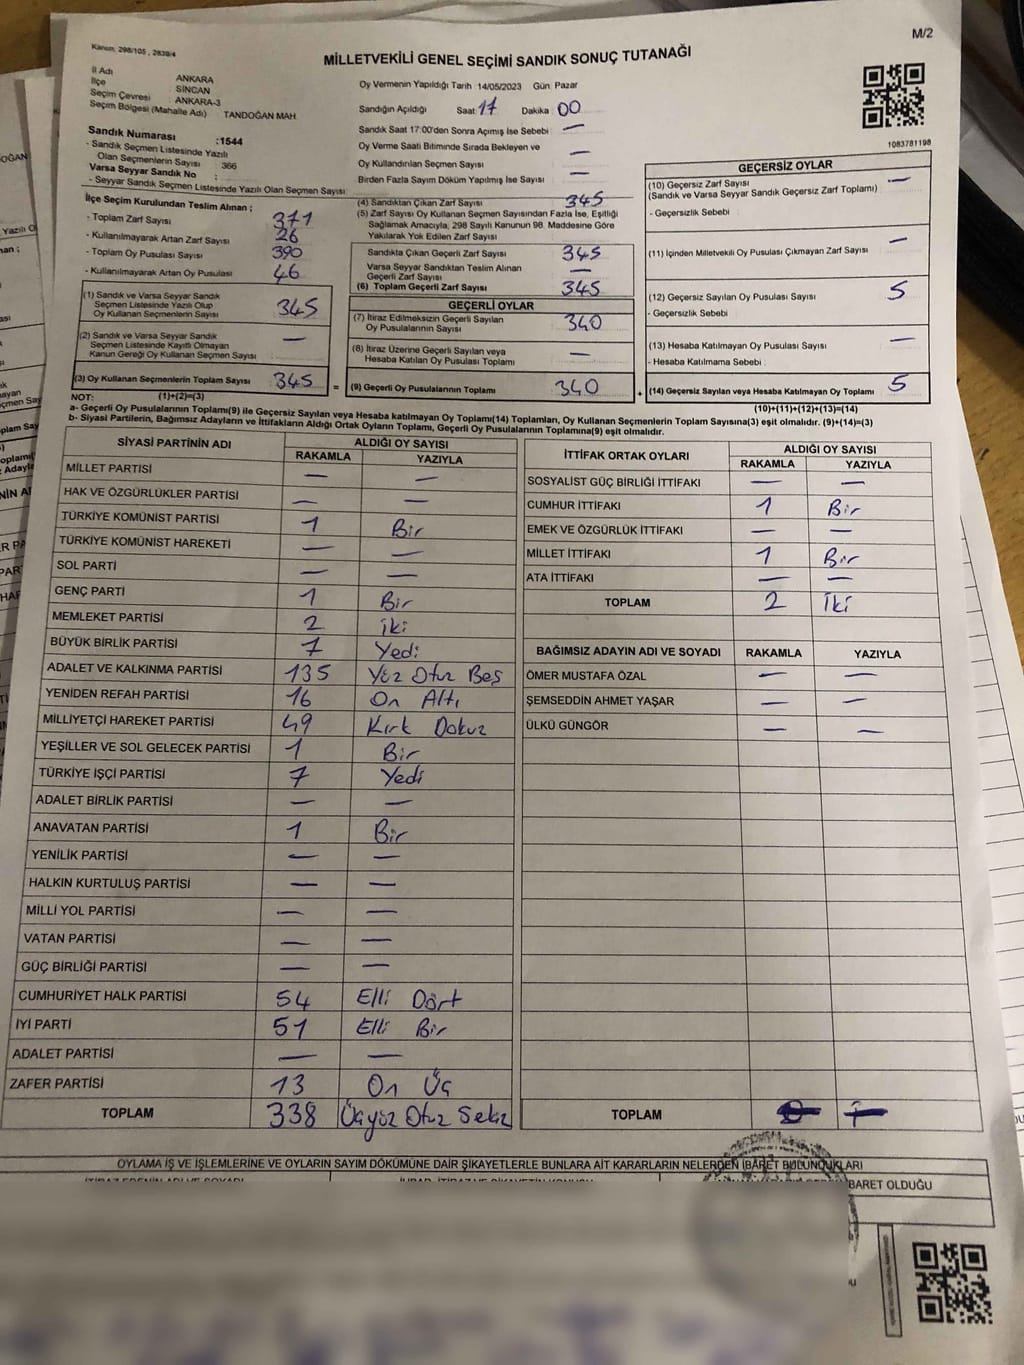 M/2
Kanun; 298/105 , 2839/4
MİLLETVEKİLİ GENEL SEÇİMİ SANDIK SONUÇ TUTANAĞI
İl Adı : ANKARA
İlçe : SİNCAN
Seçim Çevresi : ANKARA-3
Seçim Bölgesi (Mahalle Adı) : TANDOĞAN MAH
Sandık Numarası :1544
- Sandık Seçmen Listesinde Yazılı
Olan Seçmenlerin Sayısı : 366
Varsa Seyyar Sandık No :
- Seyyar Sandık Seçmen Listesinde Yazılı Olan Seçmen Sayısı:
Oy Vermenin Yapıldığı Tarih 14/05/2023 Gün: Pazar
Sandığın Açıldığı Saat: 17 Dakika : 00
Sandık Saat 17:00'den Sonra Açımış İse Sebebi : —
Oy Verme Saati Bitiminde Sırada Bekleyen ve
Oy Kullandırılan Seçmen Sayısı : —
Birden Fazla Sayım Döküm Yapılmış İse Sayısı : —
1083781198
İlçe Seçim Kurulundan Teslim Alınan ;
- Toplam Zarf Sayısı : 371
- Kullanılmayarak Artan Zarf Sayısı : 26
- Toplam Oy Pusulası Sayısı : 390
- Kullanılmayarak Artan Oy Pusulası : 46
(1) Sandık ve Varsa Seyyar Sandık
Seçmen Listesinde Yazılı Olup
Oy Kullanan Seçmenlerin Sayısı : 345
(2) Sandık ve Varsa Seyyar Sandık
Seçmen Listesinde Kayıtlı Olmayan
Kanun Gereği Oy Kullanan Seçmen Sayısı : —
(3) Oy Kullanan Seçmenlerin Toplam Sayısı : 345 =
(4) Sandıktan Çıkan Zarf Sayısı : 345
(5) Zarf Sayısı Oy Kullanan Seçmen Sayısından Fazla İse, Eşitliği
Sağlamak Amacıyla, 298 Sayılı Kanunun 98. Maddesine Göre
Yakılarak Yok Edilen Zarf Sayısı :
Sandıkta Çıkan Geçerli Zarf Sayısı : 345
Varsa Seyyar Sandıktan Teslim Alınan
Geçerli Zarf Sayısı : —
(6) Toplam Geçerli Zarf Sayısı : 345
GEÇERLİ OYLAR
(7) İtiraz Edilmeksizin Geçerli Sayılan
Oy Pusulalarının Sayısı : 340
(8) İtiraz Üzerine Geçerli Sayılan veya
Hesaba Katılan Oy Pusulası Toplamı : —
(9) Geçerli Oy Pusulalarının Toplamı : 340 +
GEÇERSİZ OYLAR
(10) Geçersiz Zarf Sayısı : —
(Sandık ve Varsa Seyyar Sandık Geçersiz Zarf Toplamı)
- Geçersizlik Sebebi :
(11) İçinden Milletvekili Oy Pusulası Çıkmayan Zarf Sayısı : —
(12) Geçersiz Sayılan Oy Pusulası Sayısı : 5
- Geçersizlik Sebebi :
(13) Hesaba Katılmayan Oy Pusulası Sayısı : —
- Hesaba Katılmama Sebebi :
(14) Geçersiz Sayılan veya Hesaba Katılmayan Oy Toplamı : 5
NOT: (1)+(2)=(3) (10)+(11)+(12)+(13)=(14)
a- Geçerli Oy Pusulalarının Toplamı(9) ile Geçersiz Sayılan veya Hesaba katılmayan Oy Toplamı(14) Toplamları, Oy Kullanan Seçmenlerin Toplam Sayısına(3) eşit olmalıdır. (9)+(14)=(3)
b- Siyasi Partilerin, Bağımsız Adayların ve İttifakların Aldığı Ortak Oyların Toplamı, Geçerli Oy Pusulalarının Toplamına(9) eşit olmalıdır.
SİYASİ PARTİNİN ADI ALDIĞI OY SAYISI
RAKAMLA YAZIYLA
MİLLET PARTİSİ — —
HAK VE ÖZGÜRLÜKLER PARTİSİ — —
TÜRKİYE KOMÜNİST PARTİSİ 1 Bir
TÜRKİYE KOMÜNİST HAREKETİ — —
SOL PARTİ — —
GENÇ PARTİ 1 Bir
MEMLEKET PARTİSİ 2 iki
BÜYÜK BİRLİK PARTİSİ 7 Yedi
ADALET VE KALKINMA PARTİSİ 135 Yüz Otuz Beş
YENİDEN REFAH PARTİSİ 16 On Altı
MİLLİYETÇİ HAREKET PARTİSİ 49 Kırk Dokuz
YEŞİLLER VE SOL GELECEK PARTİSİ 1 Bir
TÜRKİYE İŞÇİ PARTİSİ 7 Yedi
ADALET BİRLİK PARTİSİ — —
ANAVATAN PARTİSİ 1 Bir
YENİLİK PARTİSİ — —
HALKIN KURTULUŞ PARTİSİ — —
MİLLİ YOL PARTİSİ — —
VATAN PARTİSİ — —
GÜÇ BİRLİĞİ PARTİSİ — —
CUMHURİYET HALK PARTİSİ 54 Elli Dört
İYİ PARTİ 51 Elli Bir
ADALET PARTİSİ — —
ZAFER PARTİSİ 13 On Üç
TOPLAM 338 Üçyüz Otuz Sekiz
İTTİFAK ORTAK OYLARI ALDIĞI OY SAYISI
RAKAMLA YAZIYLA
SOSYALİST GÜÇ BİRLİĞİ İTTİFAKI — —
CUMHUR İTTİFAKI 1 Bir
EMEK VE ÖZGÜRLÜK İTTİFAKI — —
MİLLET İTTİFAKI 1 Bir
ATA İTTİFAKI — —
TOPLAM 2 İki
BAĞIMSIZ ADAYIN ADI VE SOYADI RAKAMLA YAZIYLA
ÖMER MUSTAFA ÖZAL — —
ŞEMSEDDİN AHMET YAŞAR — —
ÜLKÜ GÜNGÖR — —
TOPLAM
OYLAMA İŞ VE İŞLEMLERİNE VE OYLARIN SAYIM DÖKÜMÜNE DAİR ŞİKAYETLERLE BUNLARA AİT KARARLARIN NELERDEN İBARET BULUNDUKLARI
BARET OLDUĞU